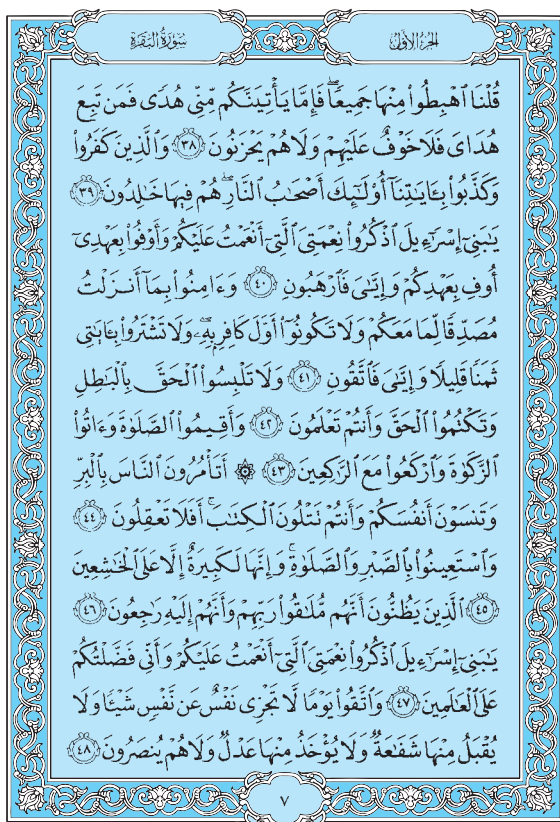 سُورَةُ البَقَرَةِ
الجزء الأول
قُلْنَا ٱهْبِطُوا۟ مِنْهَا جَمِيعًا ۖ فَإِمَّا يَأْتِيَنَّكُم مِّنِّى هُدًى فَمَن تَبِعَ
هُدَاىَ فَلَا خَوْفٌ عَلَيْهِمْ وَلَا هُمْ يَحْزَنُونَ ﴿٣٨﴾ وَٱلَّذِينَ كَفَرُوا۟
وَكَذَّبُوا۟ بِـَٔايَـٰتِنَآ أُو۟لَـٰٓئِكَ أَصْحَـٰبُ ٱلنَّارِ ۖ هُمْ فِيهَا خَـٰلِدُونَ ﴿٣٩﴾
يَـٰبَنِىٓ إِسْرَٰٓءِيلَ ٱذْكُرُوا۟ نِعْمَتِىَ ٱلَّتِىٓ أَنْعَمْتُ عَلَيْكُمْ وَأَوْفُوا۟ بِعَهْدِىٓ
أُوفِ بِعَهْدِكُمْ وَإِيَّـٰىَ فَٱرْهَبُونِ ﴿٤٠﴾ وَءَامِنُوا۟ بِمَآ أَنزَلْتُ
مُصَدِّقًا لِّمَا مَعَكُمْ وَلَا تَكُونُوٓا۟ أَوَّلَ كَافِرٍۭ بِهِۦ ۖ وَلَا تَشْتَرُوا۟ بِـَٔايَـٰتِى
ثَمَنًا قَلِيلًا وَإِيَّـٰىَ فَٱتَّقُونِ ﴿٤١﴾ وَلَا تَلْبِسُوا۟ ٱلْحَقَّ بِٱلْبَـٰطِلِ
وَتَكْتُمُوا۟ ٱلْحَقَّ وَأَنتُمْ تَعْلَمُونَ ﴿٤٢﴾ وَأَقِيمُوا۟ ٱلصَّلَوٰةَ وَءَاتُوا۟
ٱلزَّكَوٰةَ وَٱرْكَعُوا۟ مَعَ ٱلرَّٰكِعِينَ ﴿٤٣﴾ ۞ أَتَأْمُرُونَ ٱلنَّاسَ بِٱلْبِرِّ
وَتَنسَوْنَ أَنفُسَكُمْ وَأَنتُمْ تَتْلُونَ ٱلْكِتَـٰبَ ۚ أَفَلَا تَعْقِلُونَ ﴿٤٤﴾
وَٱسْتَعِينُوا۟ بِٱلصَّبْرِ وَٱلصَّلَوٰةِ ۚ وَإِنَّهَا لَكَبِيرَةٌ إِلَّا عَلَى ٱلْخَـٰشِعِينَ
﴿٤٥﴾ ٱلَّذِينَ يَظُنُّونَ أَنَّهُم مُّلَـٰقُوا۟ رَبِّهِمْ وَأَنَّهُمْ إِلَيْهِ رَٰجِعُونَ ﴿٤٦﴾
يَـٰبَنِىٓ إِسْرَٰٓءِيلَ ٱذْكُرُوا۟ نِعْمَتِىَ ٱلَّتِىٓ أَنْعَمْتُ عَلَيْكُمْ وَأَنِّى فَضَّلْتُكُمْ
عَلَى ٱلْعَـٰلَمِينَ ﴿٤٧﴾ وَٱتَّقُوا۟ يَوْمًا لَّا تَجْزِى نَفْسٌ عَن نَّفْسٍ شَيْـًٔا وَلَا
يُقْبَلُ مِنْهَا شَفَـٰعَةٌ وَلَا يُؤْخَذُ مِنْهَا عَدْلٌ وَلَا هُمْ يُنصَرُونَ ﴿٤٨﴾
٧